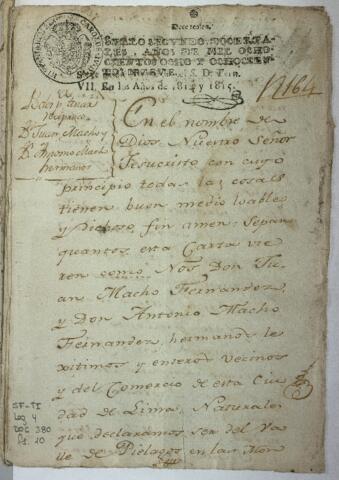 Doce reales.
SELLO SEGUNDO, DOCE REALES, AÑOS DE MIL OCHOCIENTOS OCHO Y OCHOCIENTOS NUEVE.
VII. En los Años de 1814 y 1815.
D.n Juan Macho y
D.n Antonio Macho
hermanos
En el nombre de
Dios Nuestro Señor
Jesucristo con cuyo
principio todas las cosas
tienen buen medio loables
y dichoso fin amen. Sepan
quantos esta Carta vie
ren como Nos Don Ju
an Macho Fernandez,
y Don Antonio Macho
Fernandez, hermanos le
xitimos y enteros Vecinos
y del Comercio de esta Ciu
dad de Lima, Naturales
que declaramos ser del Va
lle de Pielagos en las Mon
SF-TI
Leg 4
Doc 380
fs. 10